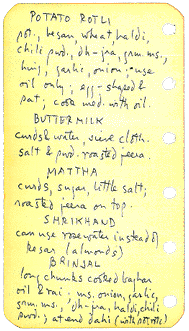 POTATO ROTLI
pot., besan, wheat, haldi,
chili pwd., dh-jra, grm. ms.,
hing, garlic, onion; use
oil only; egg-shaped &
pat; cook med. with oil.
BUTTERMILK
curds & water, sieve cloth.
salt & pwd. roasted jeera.
MATTHA
curds, sugar, little salt;
roasted jeera on top.
SHRIKHAND
can use rosewater instead of
kesar (almonds)
BRINJAL
long chunks cooked
oil & rai; ms. onion, garlic,
grm. ms., dh-jra, haldi, chili
pwd.; at end dahi (with pot. also)